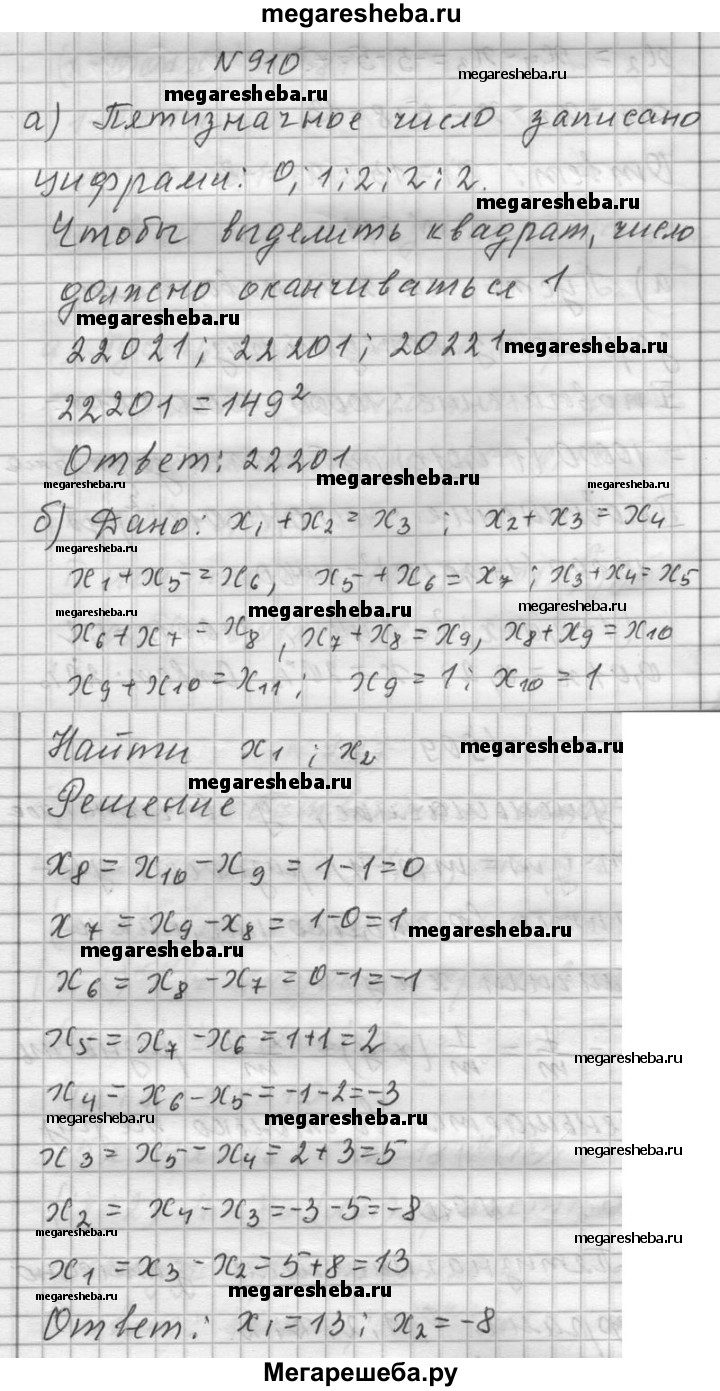 megaresheba.ru
№910
megaresheba.ru
megaresheba.ru
а) Пятизначное число записано
цифрами: 0; 1; 2; 2; 2.
megaresheba.ru
Чтобы выделить квадрат, число
должно оканчиваться 1
megaresheba.ru
22021; 22201; 20221
megaresheba.ru
22201 = 149²
Ответ: 22201
megaresheba.ru
megaresheba.ru
megaresheba.ru
б) Дано: x₁ + x₂ = x₃ ; x₂ + x₃ = x₄
megaresheba.ru
x₁ + x₅ = x₆, x₅ + x₆ = x₇ ; x₃ + x₄ = x₅
megaresheba.ru
megaresheba.ru
megaresheba.ru
x₆ + x₇ = x₈ , x₇ + x₈ = x₉, x₈ + x₉ = x₁₀
x₉ + x₁₀ = x₁₁ ; x₉ = 1 ; x₁₀ = 1
Найти x₁ ; x₂
megaresheba.ru
megaresheba.ru
Решение
x₈ = x₁₀ - x₉ = 1 - 1 = 0
x₇ = x₉ - x₈ = 1 - 0 = 1
megaresheba.ru
megaresheba.ru
x₆ = x₈ - x₇ = 0 - 1 = -1
x₅ = x₇ - x₆ = 1 + 1 = 2
megaresheba.ru
x₄ = x₆ - x₅ = -1 - 2 = -3
megaresheba.ru
megaresheba.ru
x₃ = x₅ - x₄ = 2 + 3 = 5
megaresheba.ru
x₂ = x₄ - x₃ = -3 - 5 = -8
megaresheba.ru
megaresheba.ru
x₁ = x₃ - x₂ = 5 + 8 = 13
megaresheba.ru
megaresheba.ru
Ответ: x₁ = 13 ; x₂ = -8
Мегарешеба.ру